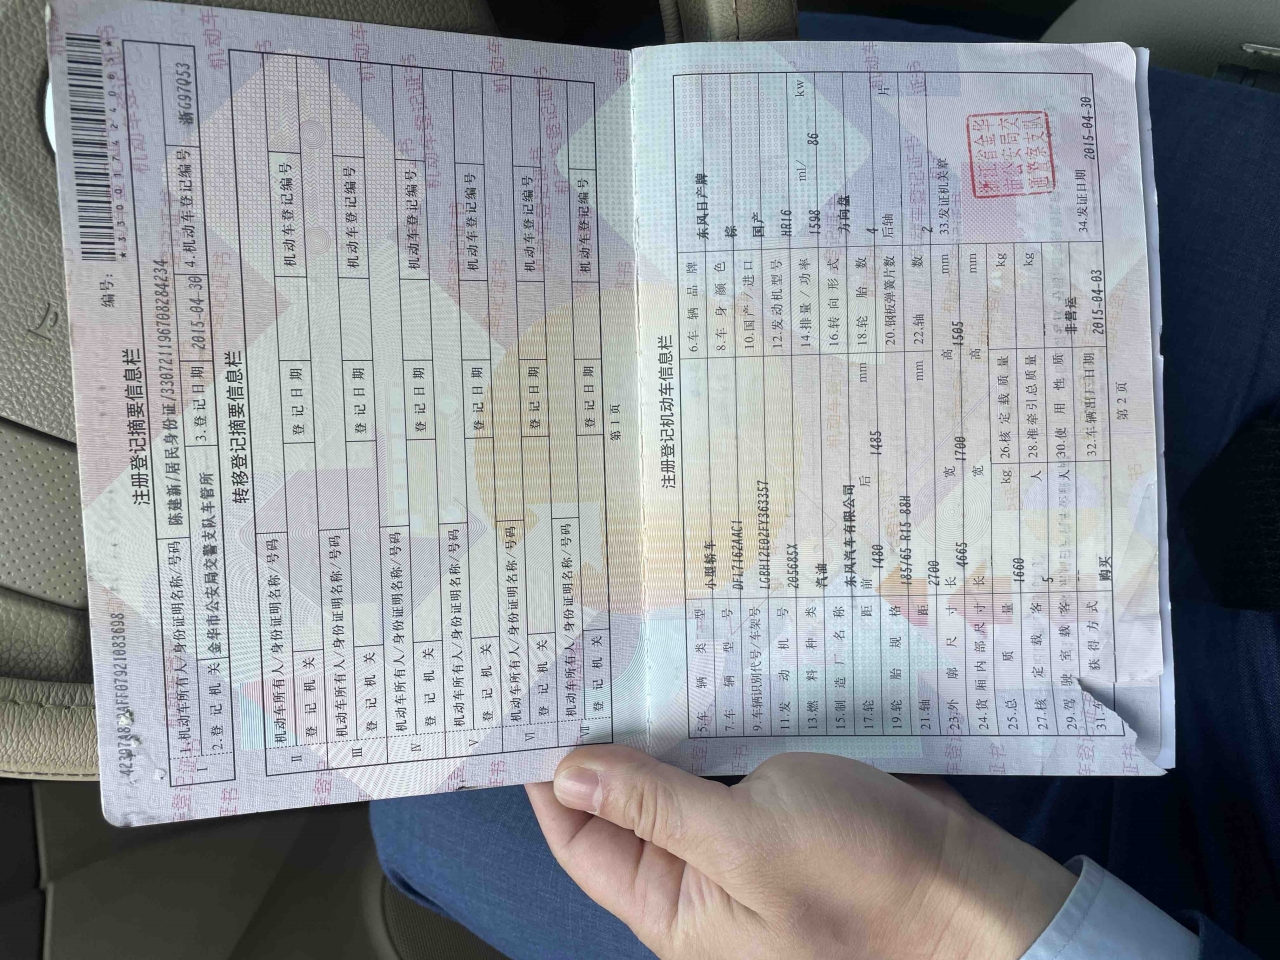 编号:
*330017424005*
注册登记摘要信息栏
Ⅰ
1.机动车所有人/身份证明名称/号码 陈建新/居民身份证/330721196708284234
2.登记机关 金华市公安局交警支队车管所 3.登记日期 2015-04-30 4.机动车登记编号 浙GG97Q53
转移登记摘要信息栏
Ⅱ
机动车所有人/身份证明名称/号码
登记机关 登记日期 机动车登记编号
Ⅲ
机动车所有人/身份证明名称/号码
登记机关 登记日期 机动车登记编号
Ⅳ
机动车所有人/身份证明名称/号码
登记机关 登记日期 机动车登记编号
Ⅴ
机动车所有人/身份证明名称/号码
登记机关 登记日期 机动车登记编号
Ⅵ
机动车所有人/身份证明名称/号码
登记机关 登记日期 机动车登记编号
Ⅶ
机动车所有人/身份证明名称/号码
登记机关 登记日期 机动车登记编号
第1页
注册登记机动车信息栏
5.车辆类型 小型轿车 6.车辆品牌 东风日产牌
7.车辆型号 DFL7162AAC1 8.车身颜色 棕
9.车辆识别代号/车架号 LGBH12E02FY363357 10.国产/进口 国产
11.发动机号 205685X 12.发动机型号 HR16
13.燃料种类 汽油 14.排量/功率 1598 ml/ 86 kw
15.制造厂名称 东风汽车有限公司 16.转向形式 方向盘
17.轮距 前 1480 后 1485 mm 18.轮胎数 4
19.轮胎规格 185/65 R15 88H 20.钢板弹簧片数 后轴 片
21.轴距 2700 mm 22.轴数 2
23.外廓尺寸 长 4665 宽 1700 高 1505 mm 33.发证机关章
24.货厢内部尺寸 长 宽 高 mm
25.总质量 1660 kg 26.核定载质量 kg
27.核定载客 5 人 28.准牵引总质量 kg
29.驾驶室载客 人 30.使用性质 非营运
获得方式 购买 32.车辆出厂日期 2015-04-03 34.发证日期 2015-04-30
浙江省金华
市公安局交
通警察支队
第2页